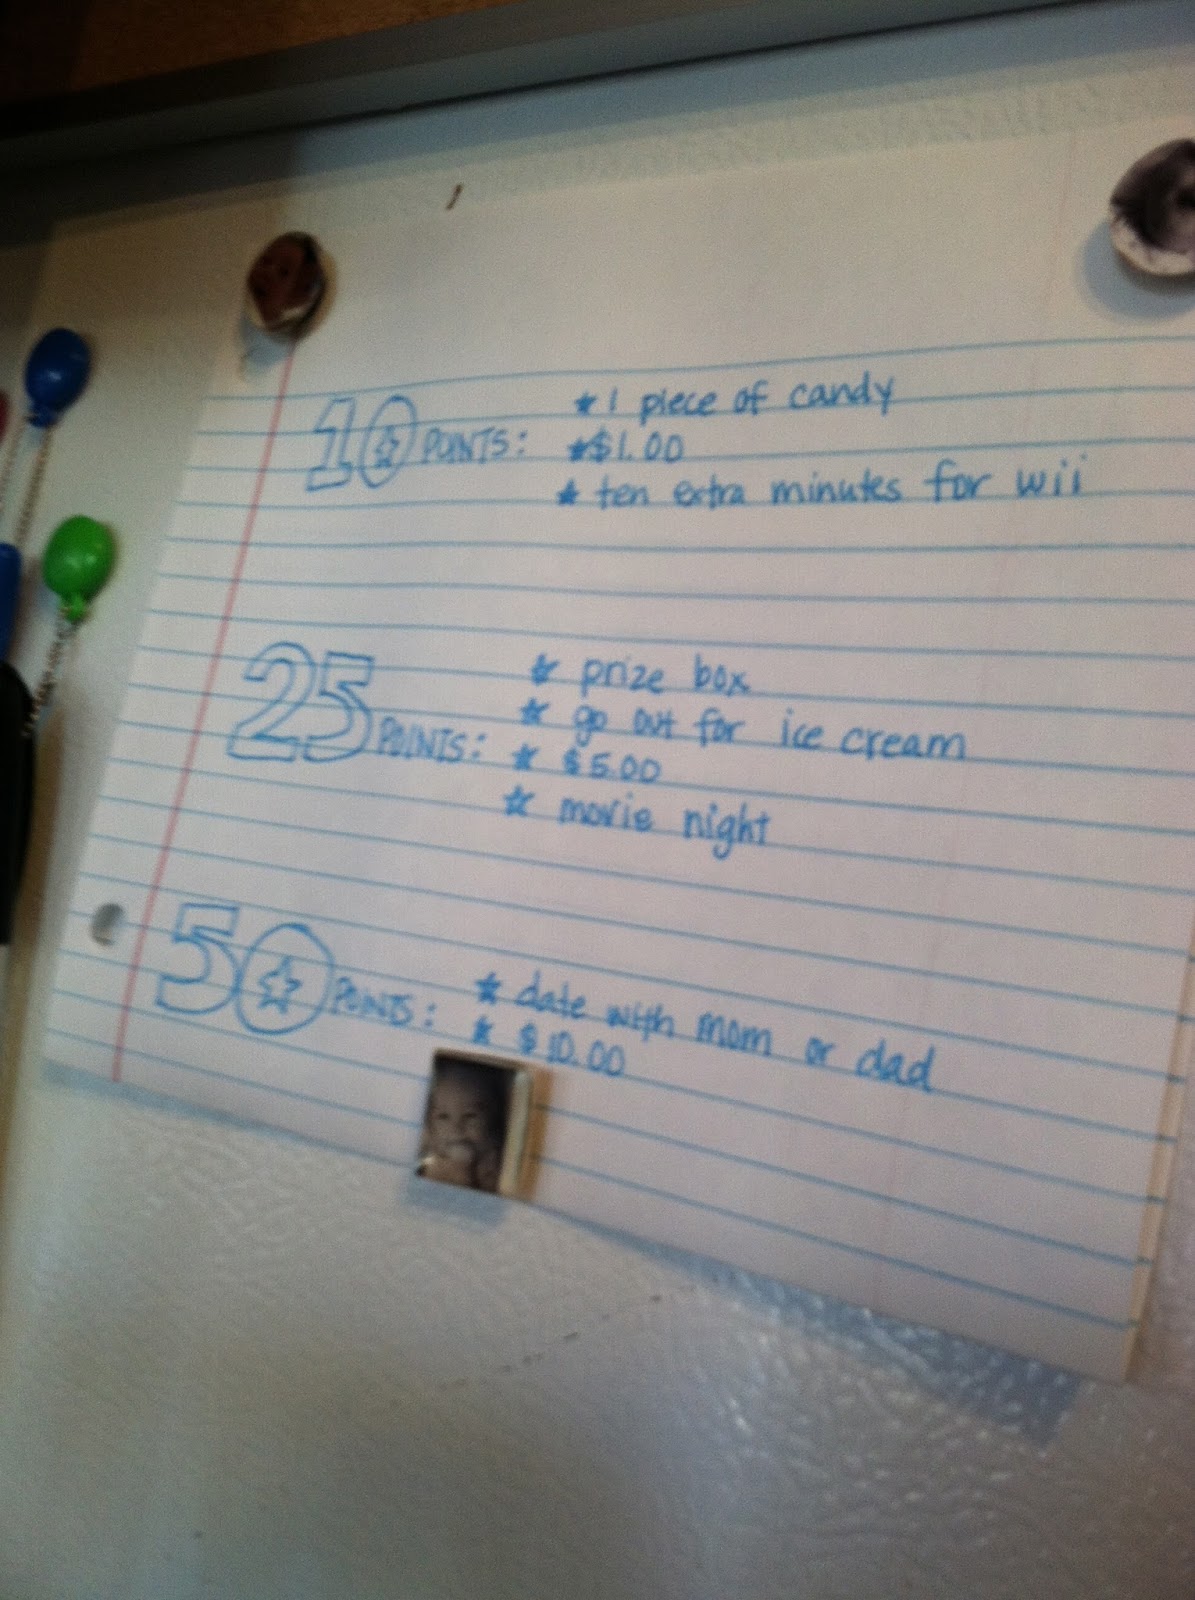 ★ 1 piece of candy
10 POINTS: ★ $1.00
★ ten extra minutes for wii
★ prize box
★ go out for ice cream
25 POINTS: ★ $5.00
★ movie night
50 POINTS: ★ date with mom or dad
★ $10.00